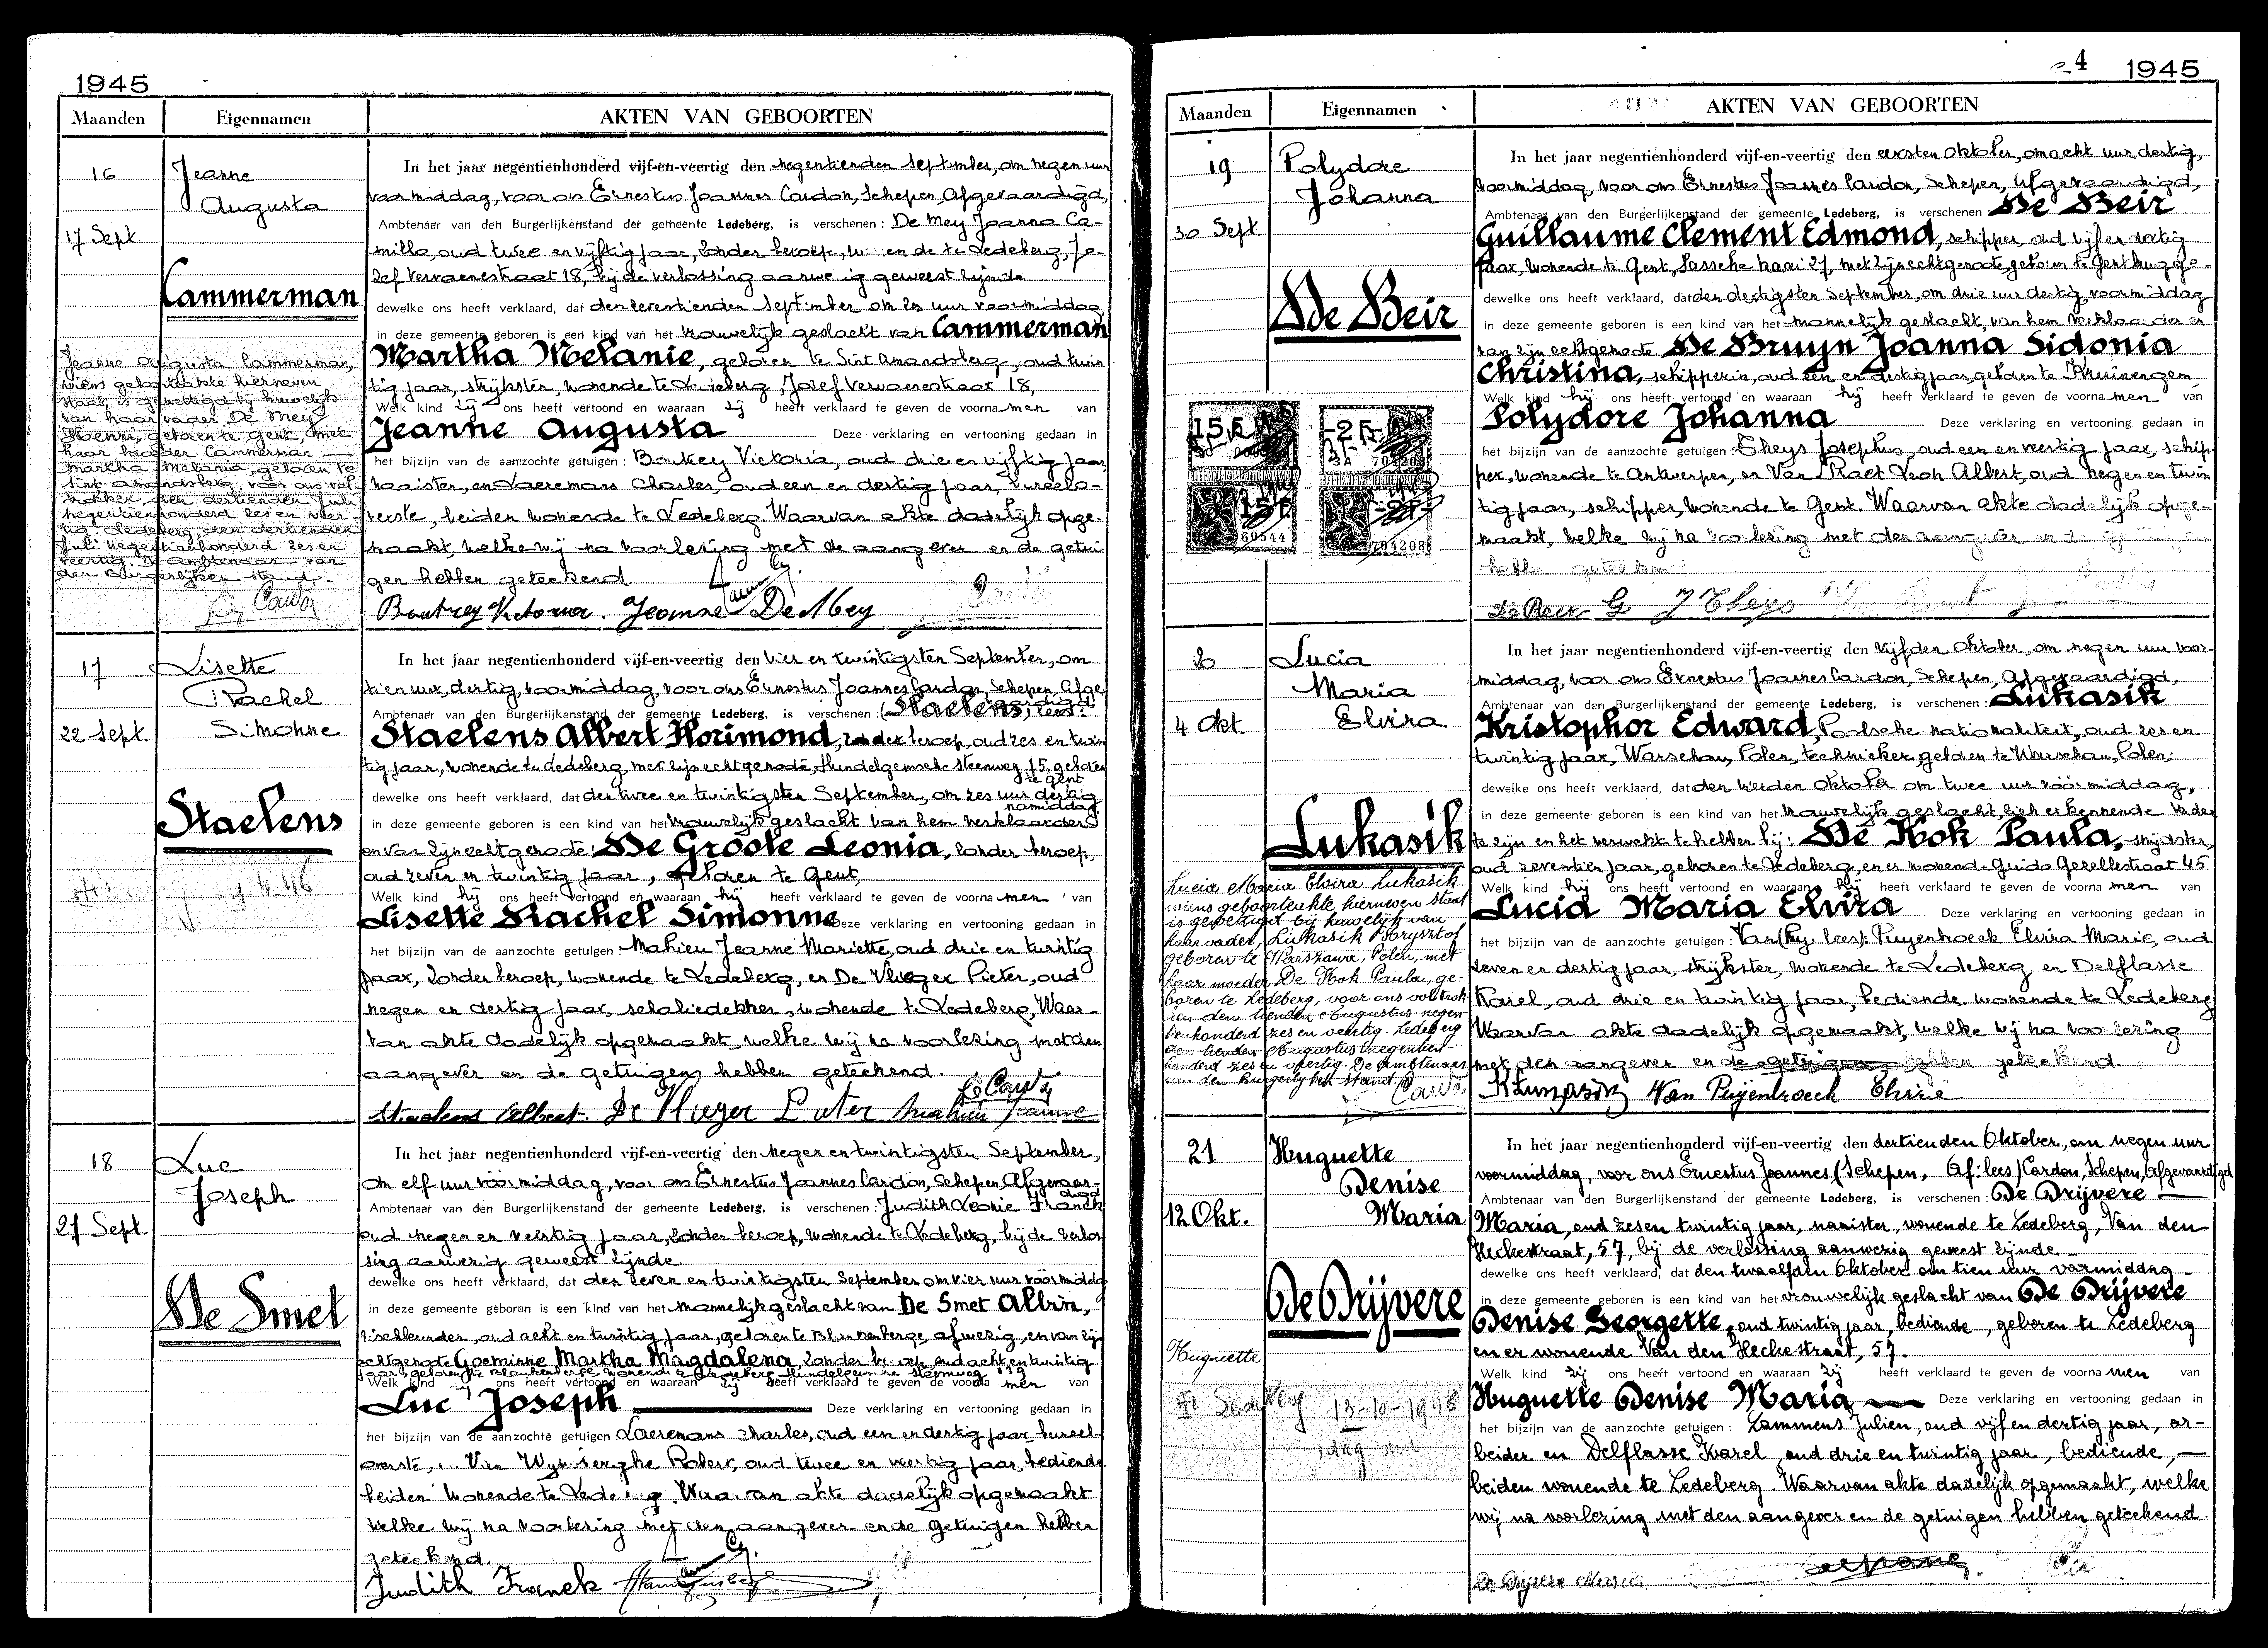 1945
Maanden Eigennamen AKTEN VAN GEBOORTEN
16
Jeanne
Augusta
17 Sept
Cammerman
Jeanne Augusta Cammerman,
wiens geboorteakte hierneven
staat, is gewettigd bij huwelijk
van haar vader De Mey
Henri, geboren te Gent, met
haar moeder Cammerman
Martha Melania, geboren te
Sint Amandsberg, voor ons vol-
trokken den dertienden Juli
negentienhonderd zes en veer-
tig. Ledeberg, den dertienden
Juli negentienhonderd zes en
veertig. De Ambtenaar van
den Burgerlijken stand.
In het jaar negentienhonderd vijf-en-veertig den negentienden September, om negen uur
voormiddag, voor ons Ernestus Joannes Cardon, Schepen, Afgevaardigd,
Ambtenaar van den Burgerlijkenstand der gemeente Ledeberg, is verschenen: De Mey Joanna Ca-
milla, oud twee en vijftig jaar, zonder beroep, wonende te Ledeberg, Jo-
zef Vervaenestraat 18, bij de verlossing aanwezig geweest zijnde
dewelke ons heeft verklaard, dat den zeventienden September om zes uur voormiddag
in deze gemeente geboren is een kind van het vrouwelijk geslacht van Cammerman
Martha Melanie, geboren te Sint Amandsberg, oud twin
tig jaar, strijkster, wonende te Ledeberg, Josef Vervaenestraat 18,
Welk kind zij ons heeft vertoond en waaraan zij heeft verklaard te geven de voorna men van
Jeanne Augusta Deze verklaring en vertooning gedaan in
het bijzijn van de aanzochte getuigen: Boutrey Victoria, oud drie en vijftig jaar
naaister, en Laeremans Charles, oud een en dertig jaar, bureelo-
verste, beiden wonende te Ledeberg. Waarvan akte dadelijk opge-
maakt, welke wij na voorlezing met de aangever en de getui
gen hebben geteekend
Boutrey Victoria. Jeanne De Mey
17
Lisette
Rachel
Simonne
22 Sept.
Staelens
9-4-46
In het jaar negentienhonderd vijf-en-veertig den vier en twintigsten September, om
tien uur, dertig, voormiddag, voor ons Ernestus Joannes Cardon, Schepen, Afge
Ambtenaar van den Burgerlijkenstand der gemeente Ledeberg, is verschenen: (Staelens, lees:
Staelens Albert Florimond, zonder beroep, oud zes en twin
tig jaar, wonende te Ledeberg, met zijn echtgenote, Hundelgemsche steenweg 15, geboren
te Gent
dewelke ons heeft verklaard, dat den twee en twintigsten September, om zes uur dertig
namiddag
in deze gemeente geboren is een kind van het vrouwelijk geslacht van hem verklaarder
en van zijn echtgenote: De Groote Leonia, zonder beroep,
oud zeven en twintig jaar, geboren te Gent,
Welk kind hij ons heeft vertoond en waaraan hij heeft verklaard te geven de voorna men van
Lisette Rachel Simonne Deze verklaring en vertooning gedaan in
het bijzijn van de aanzochte getuigen: Mahieu Jeanne Mariette, oud drie en twintig
jaar, zonder beroep, wonende te Ledeberg, en De Vlieger Pieter, oud
negen en dertig jaar, schaliedekker, wonende te Ledeberg, Waar-
van akte dadelijk opgemaakt, welke wij na voorlezing met den
aangever en de getuigen hebben geteekend.
Staelens Albert. De Vlieger Pieter Mahieu Jeanne
18
Luc
Joseph
27 Sept.
De Smet
In het jaar negentienhonderd vijf-en-veertig den negen en twintigsten September,
om elf uur vóórmiddag, voor ons Ernestus Joannes Cardon, Schepen, Afgevaar-
digd
Ambtenaar van den Burgerlijkenstand der gemeente Ledeberg, is verschenen: Judith Leonie Franck
oud negen en veertig jaar, zonder beroep, wonende te Ledeberg, bij de verlos
sing aanwezig geweest zijnde
dewelke ons heeft verklaard, dat den zeven en twintigsten September om vier uur vóórmiddag
in deze gemeente geboren is een kind van het mannelijk geslacht van De Smet Albin,
oud acht en twintig jaar, geboren te Blankenberge, afwezig, en van zijn
echtgenote Goeminne Martha Magdalena, zonder beroep, oud acht en twintig
jaar, geboren te Blankenberge, wonende te Ledeberg Hundelgemsche steenweg 139
Welk kind zij ons heeft vertoond en waaraan zij heeft verklaard te geven de voorna men van
Luc Joseph Deze verklaring en vertooning gedaan in
het bijzijn van de aanzochte getuigen Laeremans Charles, oud een en dertig jaar, bureel-
overste, Van Wynsberghe Robert, oud twee en veertig jaar, bediende
beiden wonende te Ledeberg. Waarvan akte dadelijk opgemaakt
welke wij na voorlezing met den aangever en de getuigen hebben
geteekend.
Judith Franck
4 1945
Maanden Eigennamen AKTEN VAN GEBOORTEN
19
Polydore
Johanna
30 Sept
De Beir
In het jaar negentienhonderd vijf-en-veertig den eersten Oktober, om acht uur dertig,
voormiddag, voor ons Ernestus Joannes Cardon, Schepen, Afgevaardigd,
Ambtenaar van den Burgerlijkenstand der gemeente Ledeberg, is verschenen De Beir
Guillaume Clement Edmond, schipper, oud vijf en dertig
jaar, wonende te Gent, Sassche kaai 27, met zijn echtgenote, geboren te Gentbrugge.
dewelke ons heeft verklaard, dat den dertigsten September, om drie uur dertig, voormiddag
in deze gemeente geboren is een kind van het mannelijk geslacht, van hem verklaarder en
van zijn echtgenote De Bruyn Joanna Sidonia
Christina, schipperin, oud een en dertig jaar, geboren te Kruiningen,
Welk kind hij ons heeft vertoond en waaraan hij heeft verklaard te geven de voorna men van
Polydore Johanna Deze verklaring en vertooning gedaan in
het bijzijn van de aanzochte getuigen: Theys Josephus, oud een en veertig jaar, schip-
per, wonende te Antwerpen, en Van Praet Leon Albert, oud negen en twin
tig jaar, schipper, wonende te Gent. Waarvan akte dadelijk opge-
maakt, welke wij na voorlezing met den aangever en
hebben geteekend
De Beir G J Theys
20
Lucia
Maria
Elvira.
4 Okt.
Lukasik
Lucia Maria Elvira Lukasik
wiens geboorteakte hierneven staat
is gewettigd bij huwelijk van
haar vader, Lukasik Krysztof
geboren te Warszawa, Polen, met
haar moeder De Kok Paula, ge-
boren te Ledeberg, voor ons voltrok
ken den tienden Augustus negen
tienhonderd zes en veertig. Ledeberg
den tienden Augustus negentien
honderd zes en veertig. De Ambtenaar
van den Burgerlyken stand
In het jaar negentienhonderd vijf-en-veertig den Vijfden Oktober, om negen uur voor-
middag, voor ons Ernestus Joannes Cardon, Schepen, Afgevaardigd,
Ambtenaar van den Burgerlijkenstand der gemeente Ledeberg, is verschenen: Lukasik
Kristophor Edward, Poolsche nationaliteit, oud zes en
twintig jaar, Warschau, Polen, technieker, geboren te Warschau, Polen;
dewelke ons heeft verklaard, dat den vierden Oktober om twee uur vóórmiddag,
in deze gemeente geboren is een kind van het vrouwelijk geslacht, zich erkennende vader
te zijn en het verwekt te hebben bij: De Kok Paula, strijkster,
oud zeventien jaar, geboren te Ledeberg, en er wonende Guido Gezellestraat 45
Welk kind hij ons heeft vertoond en waaraan hij heeft verklaard te geven de voorna men van
Lucia Maria Elvira Deze verklaring en vertooning gedaan in
het bijzijn van de aanzochte getuigen: Van (Py lees): Puyenbroeck Elvira Marie, oud
zeven en dertig jaar, strijkster, wonende te Ledeberg en Delflasse
Karel, oud drie en twintig jaar, bediende wonende te Ledeberg
Waarvan akte dadelijk opgemaakt, welke wij na voorlezing
met den aangever en de getuigen hebben geteekend.
Van Puyenbroeck Elvire
21
Huguette
Denise
Maria
12 Okt.
De Drijvere
Huguette
13-10-1945
In het jaar negentienhonderd vijf-en-veertig den dertienden Oktober, om negen uur
voormiddag, voor ons Ernestus Joannes (Schepen, Af: lees) Cardon, Schepen, Afgevaardigd
Ambtenaar van den Burgerlijkenstand der gemeente Ledeberg, is verschenen: De Drijvere
Maria, oud zesen twintig jaar, naaister, wonende te Ledeberg, Van den
Heckestraat, 57, bij de verlossing aanwezig geweest zijnde
dewelke ons heeft verklaard, dat den twaalfden Oktober om tien uur voormiddag
in deze gemeente geboren is een kind van het vrouwelijk geslacht van De Drijvere
Denise Georgette, oud twintig jaar, bediende, geboren te Ledeberg
en er wonende Van den Heckestraat, 57.
Welk kind zij ons heeft vertoond en waaraan zij heeft verklaard te geven de voorna men van
Huguette Denise Maria Deze verklaring en vertooning gedaan in
het bijzijn van de aanzochte getuigen: Lammens Julien, oud vijf en dertig jaar, ar-
beider en Delflasse Karel, oud drie en twintig jaar, bediende,
beiden wonende te Ledeberg. Waarvan akte dadelijk opgemaakt, welke
wij na voorlezing met den aangever en de getuigen hebben geteekend.
De Drijvere Maria